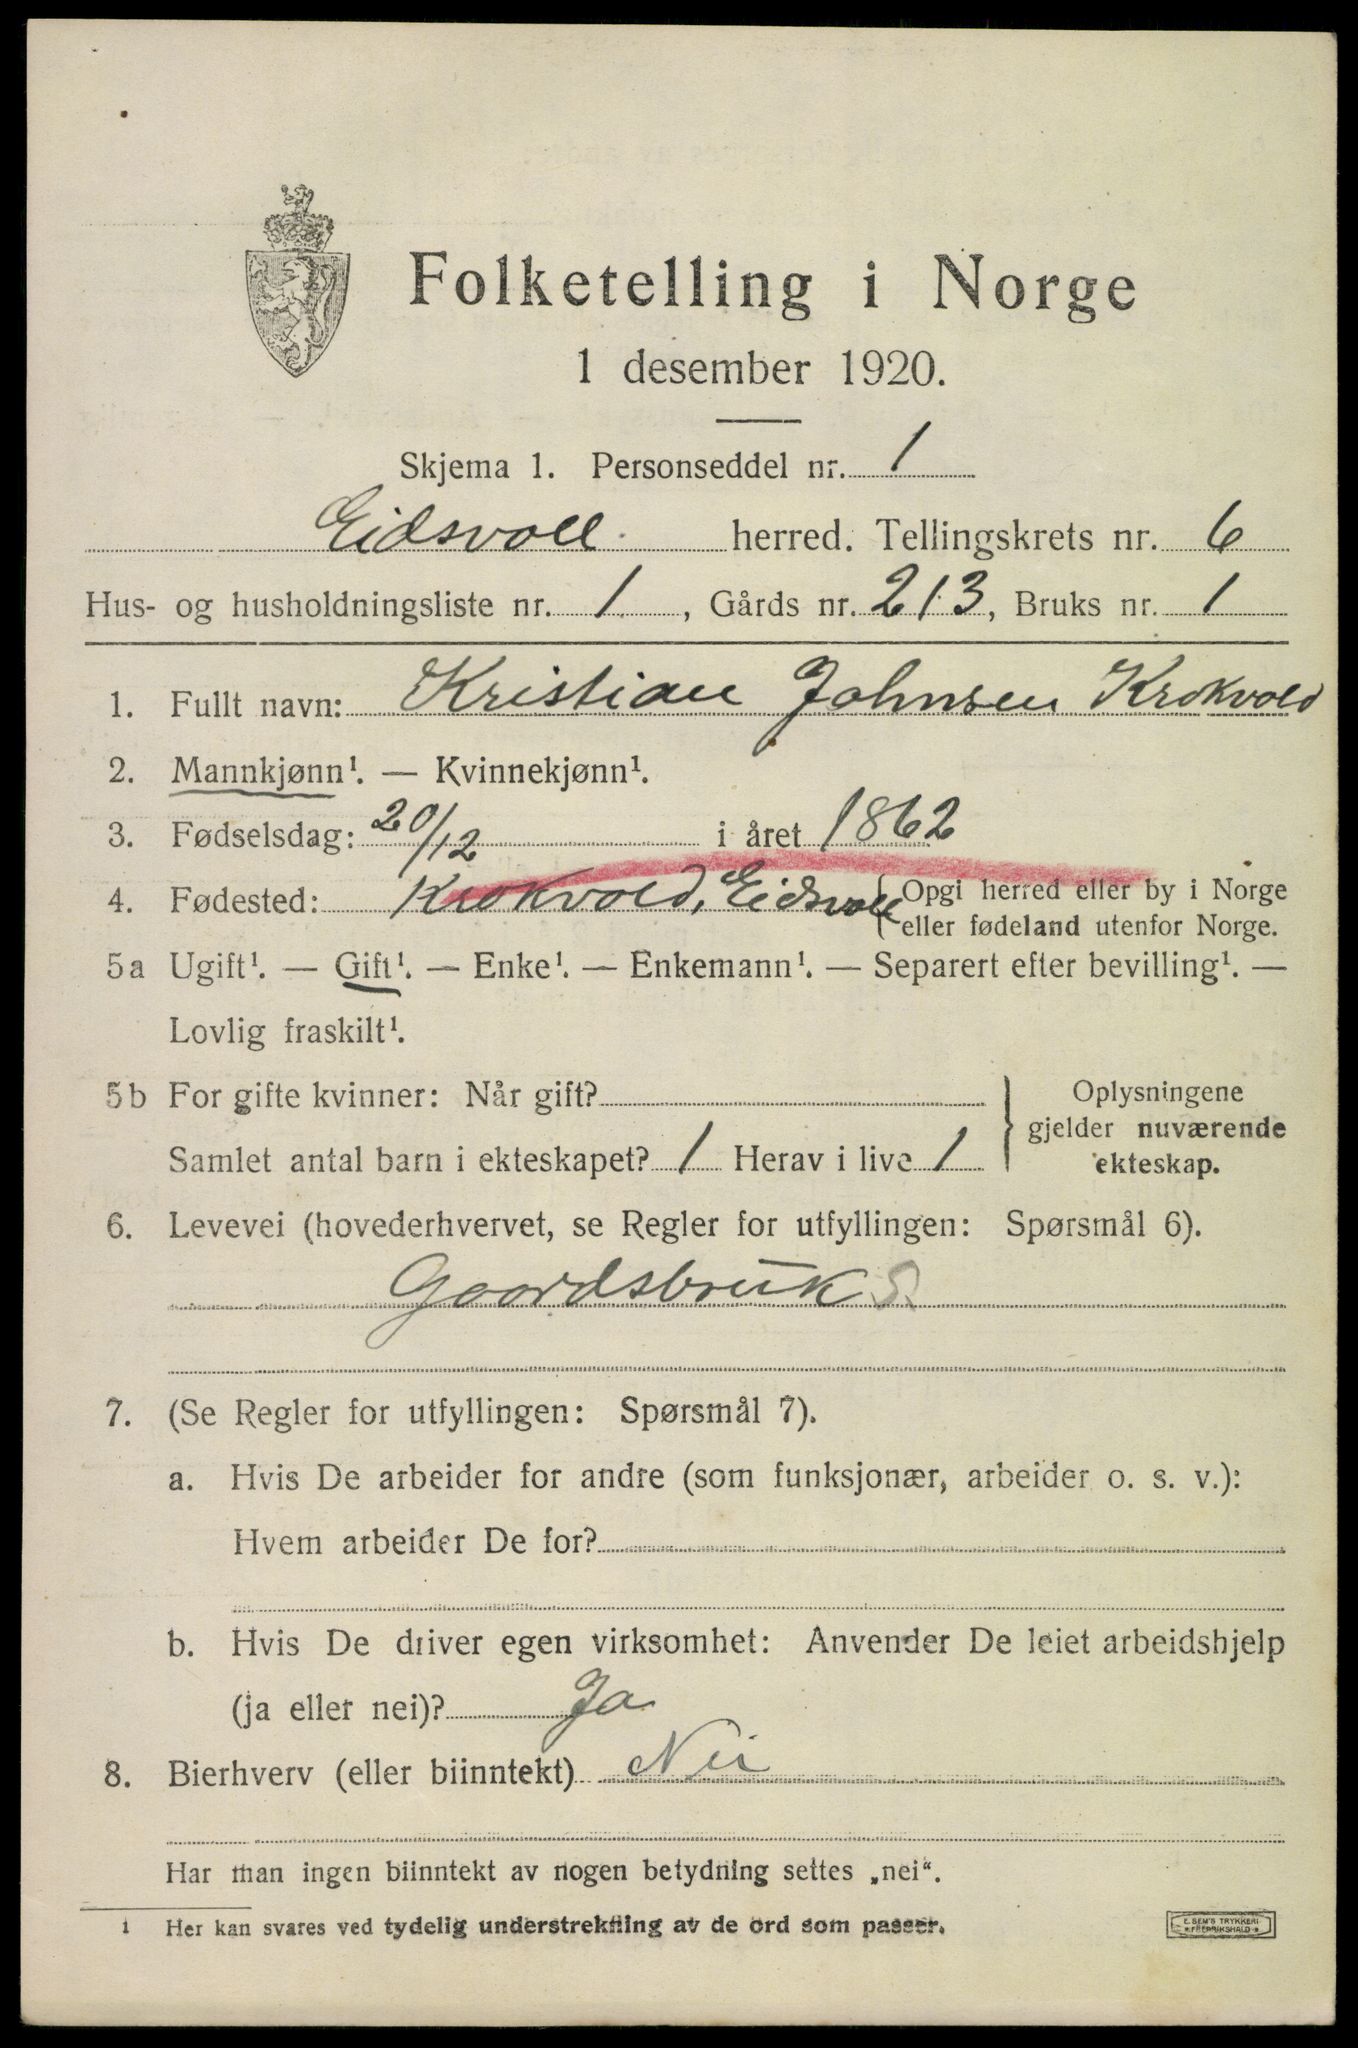 Folketelling i Norge
1 desember 1920.
Skjema 1. Personseddel nr. 1
Eidsvoll herred. Tellingskrets nr. 6
Hus- og husholdningsliste nr. 1, Gårds nr. 213, Bruks nr. 1
1. Fullt navn: Kristian Johnsen Krokvold
2. Mannkjønn¹. — Kvinnekjønn¹.
3. Fødselsdag: 20/12 i året 1862
4. Fødested: Krokvold, Eidsvoll {Opgi herred eller by i Norge
eller fødeland utenfor Norge.
5a Ugift¹. — Gift¹. — Enke¹. — Enkemann¹. — Separert efter bevilling¹. —
Lovlig fraskilt¹.
5b For gifte kvinner: Når gift?
Samlet antal barn i ekteskapet? 1 Herav i live 1
Oplysningene
gjelder nuværende
ekteskap.
6. Levevei (hovederhvervet, se Regler for utfyllingen: Spørsmål 6).
Gaardsbruk S.
7. (Se Regler for utfyllingen: Spørsmål 7).
a. Hvis De arbeider for andre (som funksjonær, arbeider o. s. v.):
Hvem arbeider De for?
b. Hvis De driver egen virksomhet: Anvender De leiet arbeidshjelp
(ja eller nei)? Ja
8. Bierhverv (eller biinntekt) Nei
Har man ingen biinntekt av nogen betydning settes „nei“.
1 Her kan svares ved tydelig understrekning av de ord som passer.
E. SEM'S TRYKKERI
FREDRIKSHALD